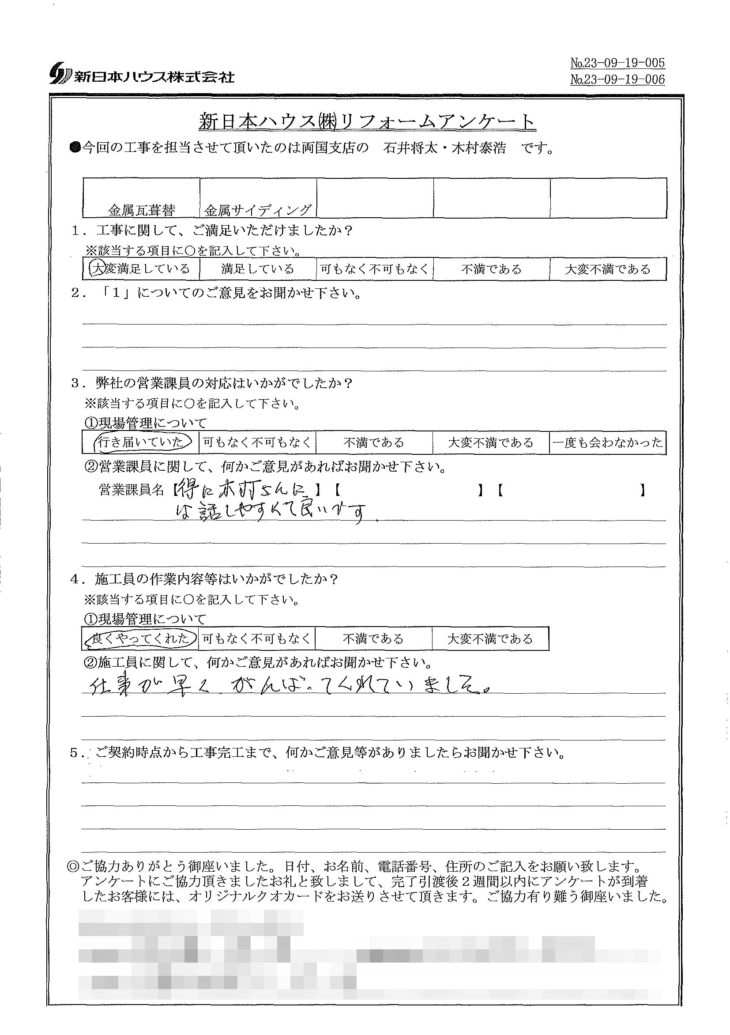 新日本ハウス株式会社
No.23-09-19-005
No.23-09-19-006
新日本ハウス㈱リフォームアンケート
●今回の工事を担当させて頂いたのは両国支店の　石井将太・木村泰浩　です。
金属瓦葺替　金属サイディング
1．工事に関して、ご満足いただけましたか？
※該当する項目に〇を記入して下さい。
大変満足している　満足している　可もなく不可もなく　不満である　大変不満である
2．「1」についてのご意見をお聞かせ下さい。
3．弊社の営業課員の対応はいかがでしたか？
※該当する項目に〇を記入して下さい。
①現場管理について
行き届いていた　可もなく不可もなく　不満である　大変不満である　一度も会わなかった
②営業課員に関して、何かご意見があればお聞かせ下さい。
営業課員名【得に木村さんに】【　】【　】
は話しやすくて良いです
4．施工員の作業内容等はいかがでしたか？
※該当する項目に〇を記入して下さい。
①現場管理について
良くやってくれた　可もなく不可もなく　不満である　大変不満である
②施工員に関して、何かご意見があればお聞かせ下さい。
仕事が早く がんばってくれていました。
5．ご契約時点から工事完工まで、何かご意見等がありましたらお聞かせ下さい。
◎ご協力ありがとう御座いました。日付、お名前、電話番号、住所のご記入をお願い致します。
アンケートにご協力頂きましたお礼と致しまして、完了引渡後2週間以内にアンケートが到着
したお客様には、オリジナルクオカードをお送りさせて頂きます。ご協力有り難う御座いました。